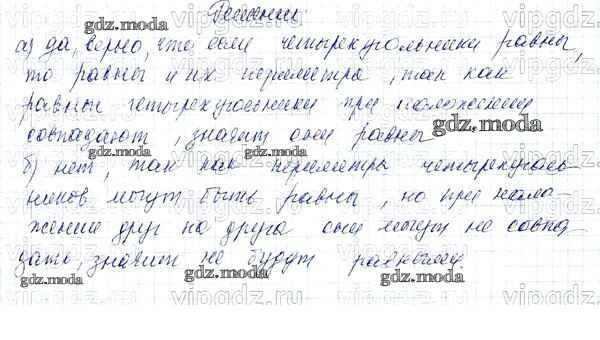 Решение:
а) да, верно, что если четырехугольники равны,
то равны и их периметры, так как
равные четырехугольники при наложении
совпадают, значит они равны
б) нет, так как периметры четырехуголь-
ников могут быть равны, но при нало-
жении друг на друга они могут не совпа-
дать, значит не будут равными
gdz.moda
gdz.moda
gdz.moda
gdz.moda
gdz.moda
gdz.moda
gdz.moda
gdz.moda
gdz.moda
vipgdz.ru